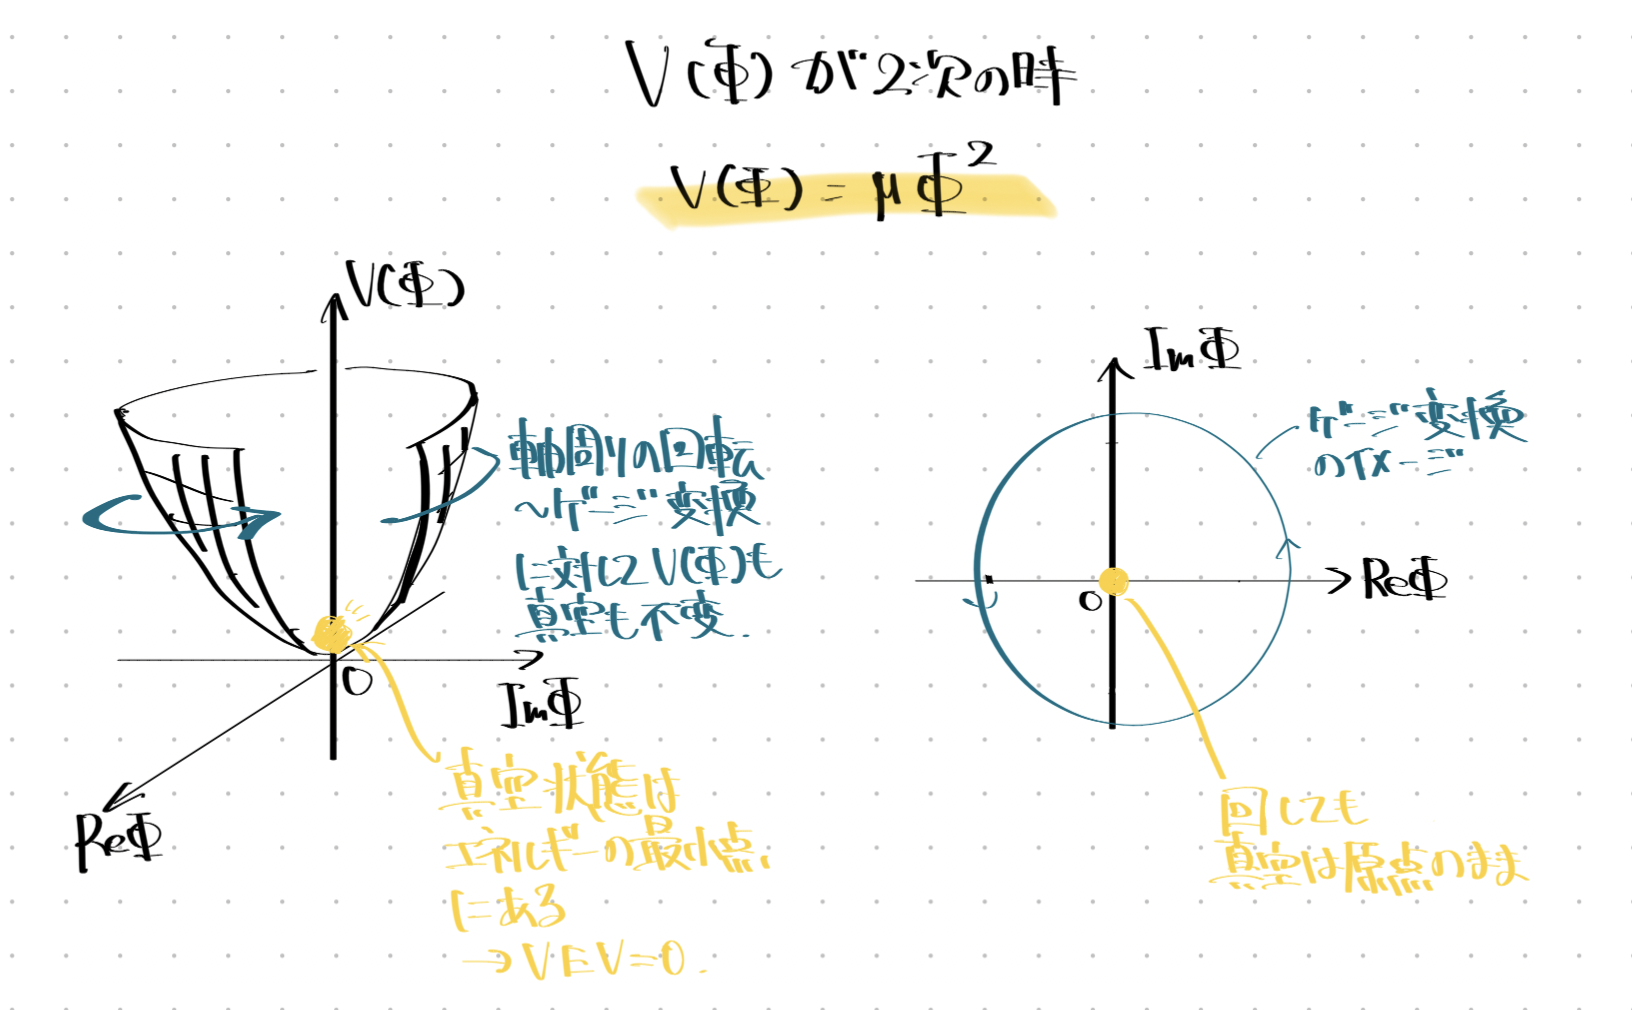 V(Φ)が2次の時
V(Φ) = μΦ²
V(Φ)
軸周りの回転
〜ゲージ変換
に対してV(Φ)も
真空も不変.
0
ImΦ
ReΦ
真空状態は
エネルギーの最小点
にある
→VEV=0.
ImΦ
ゲージ変換
のイメージ
ReΦ
0
回しても
真空は原点のまま